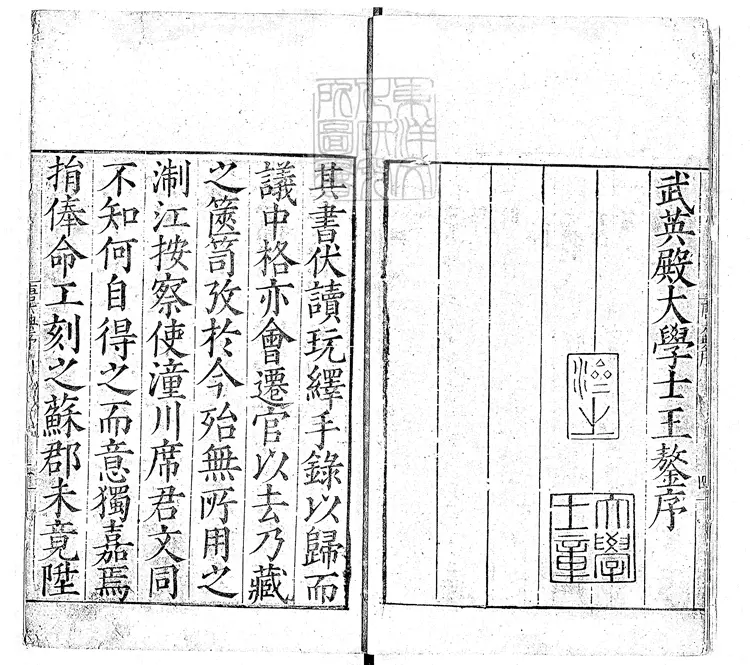 武英殿大學士王鏊序
濟之
大學
士章
其書伏讀玩繹手錄以歸而
議中格亦會遷官以去乃藏
之篋笥攷於今殆無所用之
淛江按察使潼川席君文同
不知何自得之而意獨嘉焉
捐俸命工刻之蘇郡未竟陞
東洋文
化研究
所圖